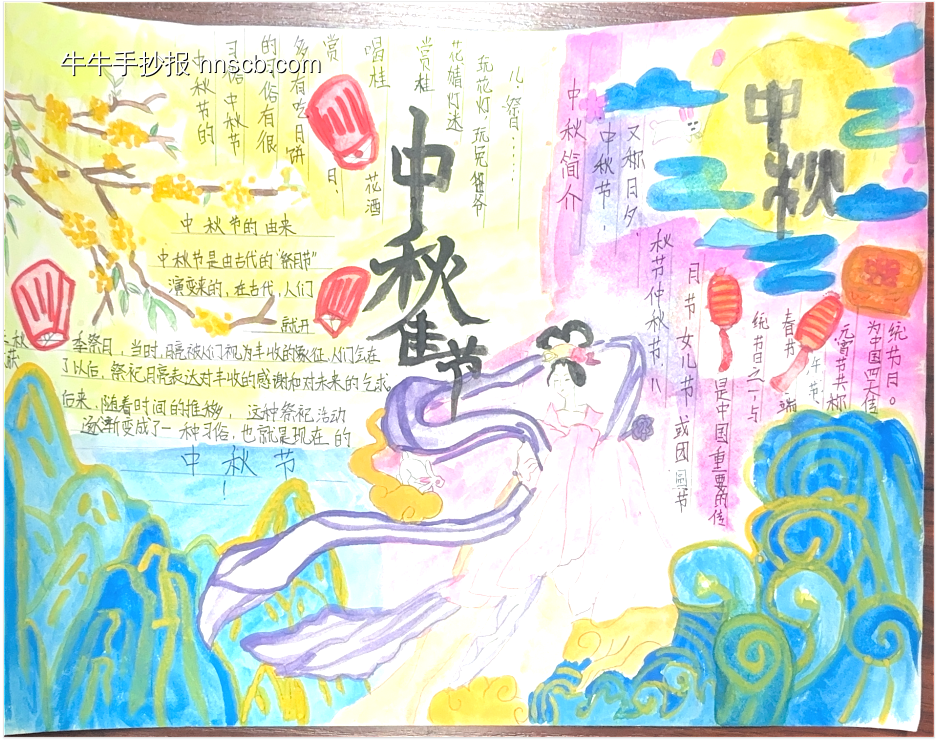 牛牛手抄报 nnscb.com
中秋佳节
中秋
中秋节的
习俗中秋节
的习俗有很
多有吃月饼
赏
月!
唱桂
花酒
赏桂
花婧灯迷
玩花灯,玩兔爷爷
儿,祭日……
中秋节的由来
中秋节是由古代的“祭月节”
演变来的,在古代,人们
就开
季祭月,当时,月亮被人们视为丰收的象征,人们会在
了以后,祭祀月亮表达对丰收的感谢和对未来的乞求。
后来,随着时间的推移,这种祭祀活动
逐渐变成了一种习俗,也就是现在的
中秋节
!
中秋简介
中秋节,
又称月夕,
秋节仲秋节,
月节女儿节或团圆节
是中国重要的传
统节日之一,与
春节、端
午节、
元宵节共称
为中国四大传
统节日。